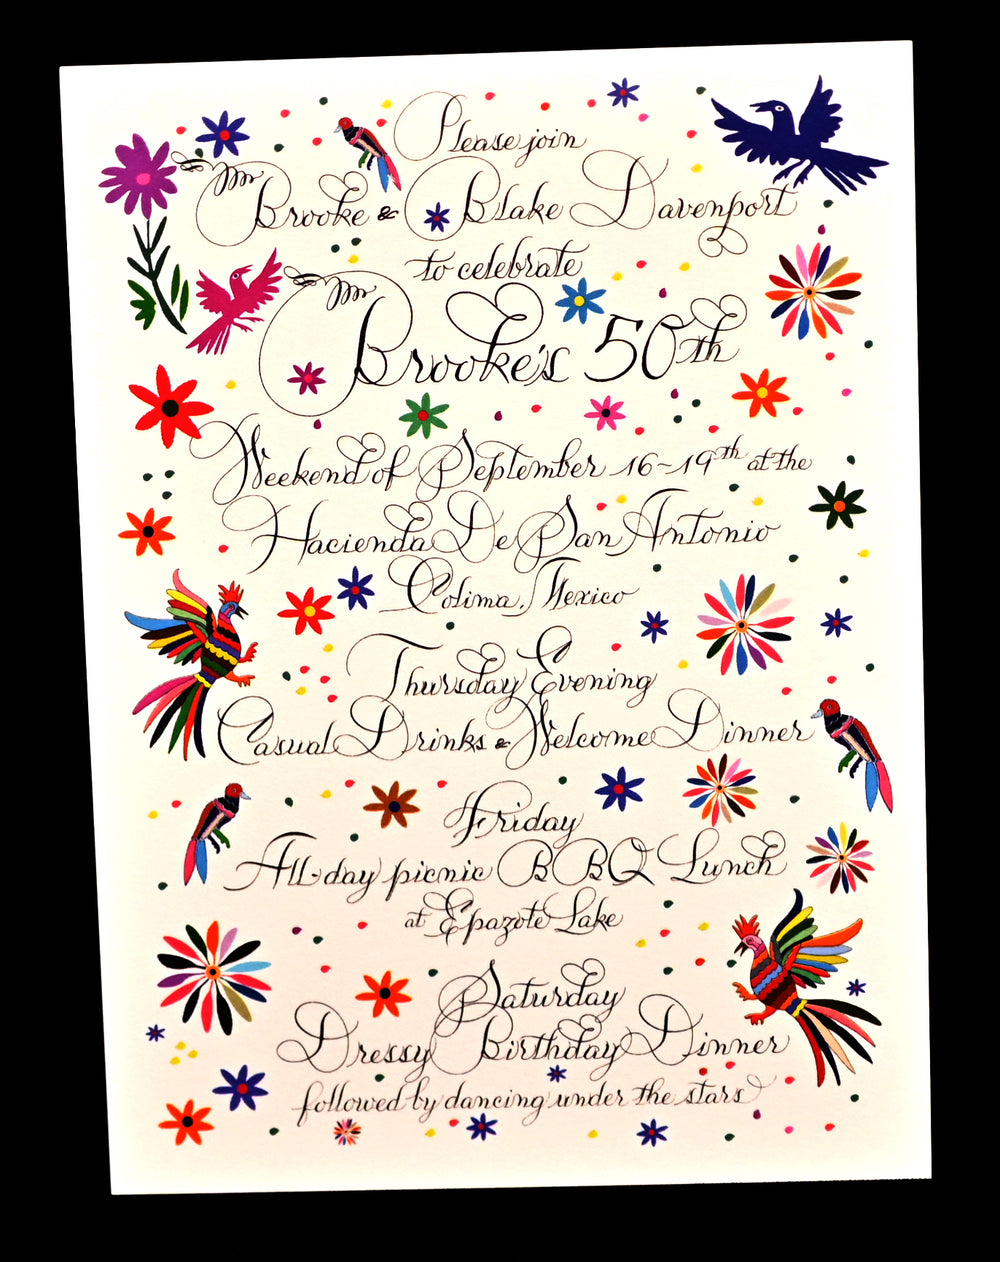 Please join
Brooke & Blake Davenport
to celebrate
Brooke's 50th
Weekend of September 16~19th at the
Hacienda De San Antonio
Colima, Mexico
Thursday Evening
Casual Drinks & Welcome Dinner
Friday
All-day picnic BBQ Lunch
at Epazote Lake
Saturday
Dressy Birthday Dinner
followed by dancing under the stars